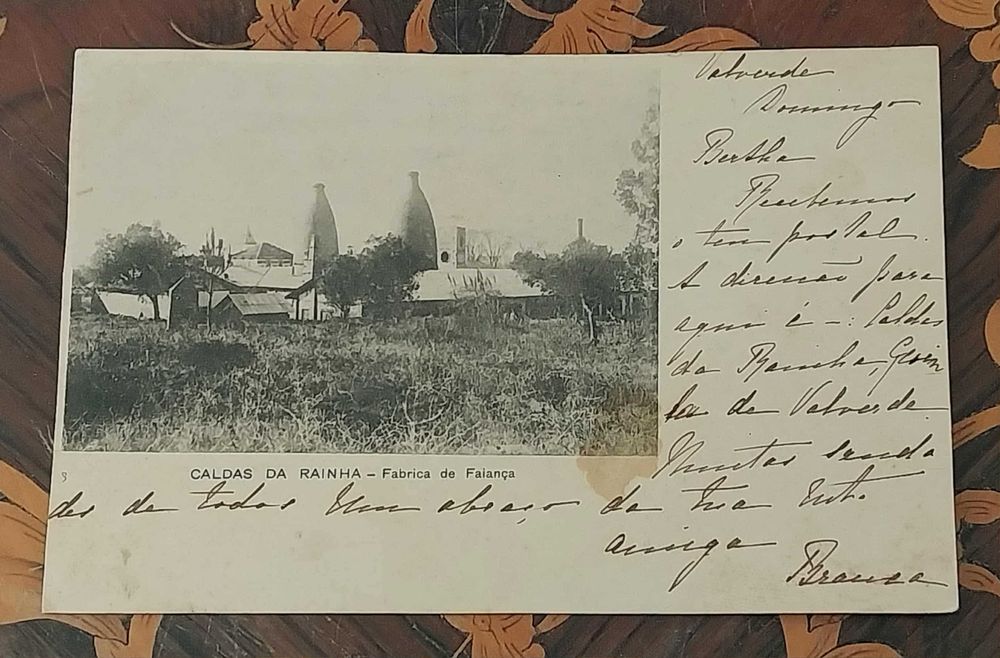 Valverde
Domingo
Bertha
Recebemos
o teu postal.
A direcão para
aqui é –: Caldas
da Rainha, Quin
ta de Valverde.
Muitas sauda
8
CALDAS DA RAINHA – Fabrica de Faiança
des de todos Um abraço da tua
amiga
Branca